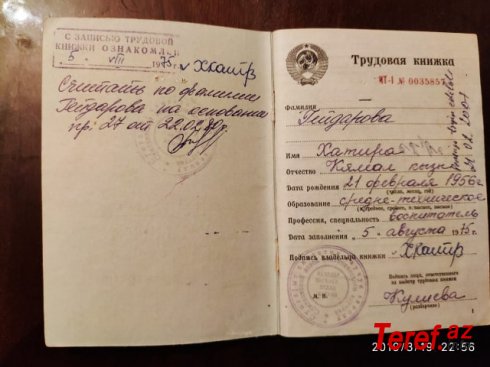 С ЗАПИСЬЮ ТРУДОВОЙ
КНИЖКИ ОЗНАКОМЛЕН
5 VIII 1975 г.
Считать по фамилии
Гейдарова на основании
пр: 27 от 22.02.80г.
Трудовая книжка
АТ-I № 0035857
Фамилия
Гейдарова
Имя Хатира
Отчество Кямал кызы
Дата рождения 21 февраля 1956 г
(число, месяц, год)
Образование средне-техническое
Профессия, специальность воспитатель
Дата заполнения 5. августа 1975 г.
Подпись владельца книжки
Подпись лица, ответственного
за выдачу трудовых книжек
М. П.
Кулиева
(разборчиво)
1
Teref.az
2019/3/19 22:56